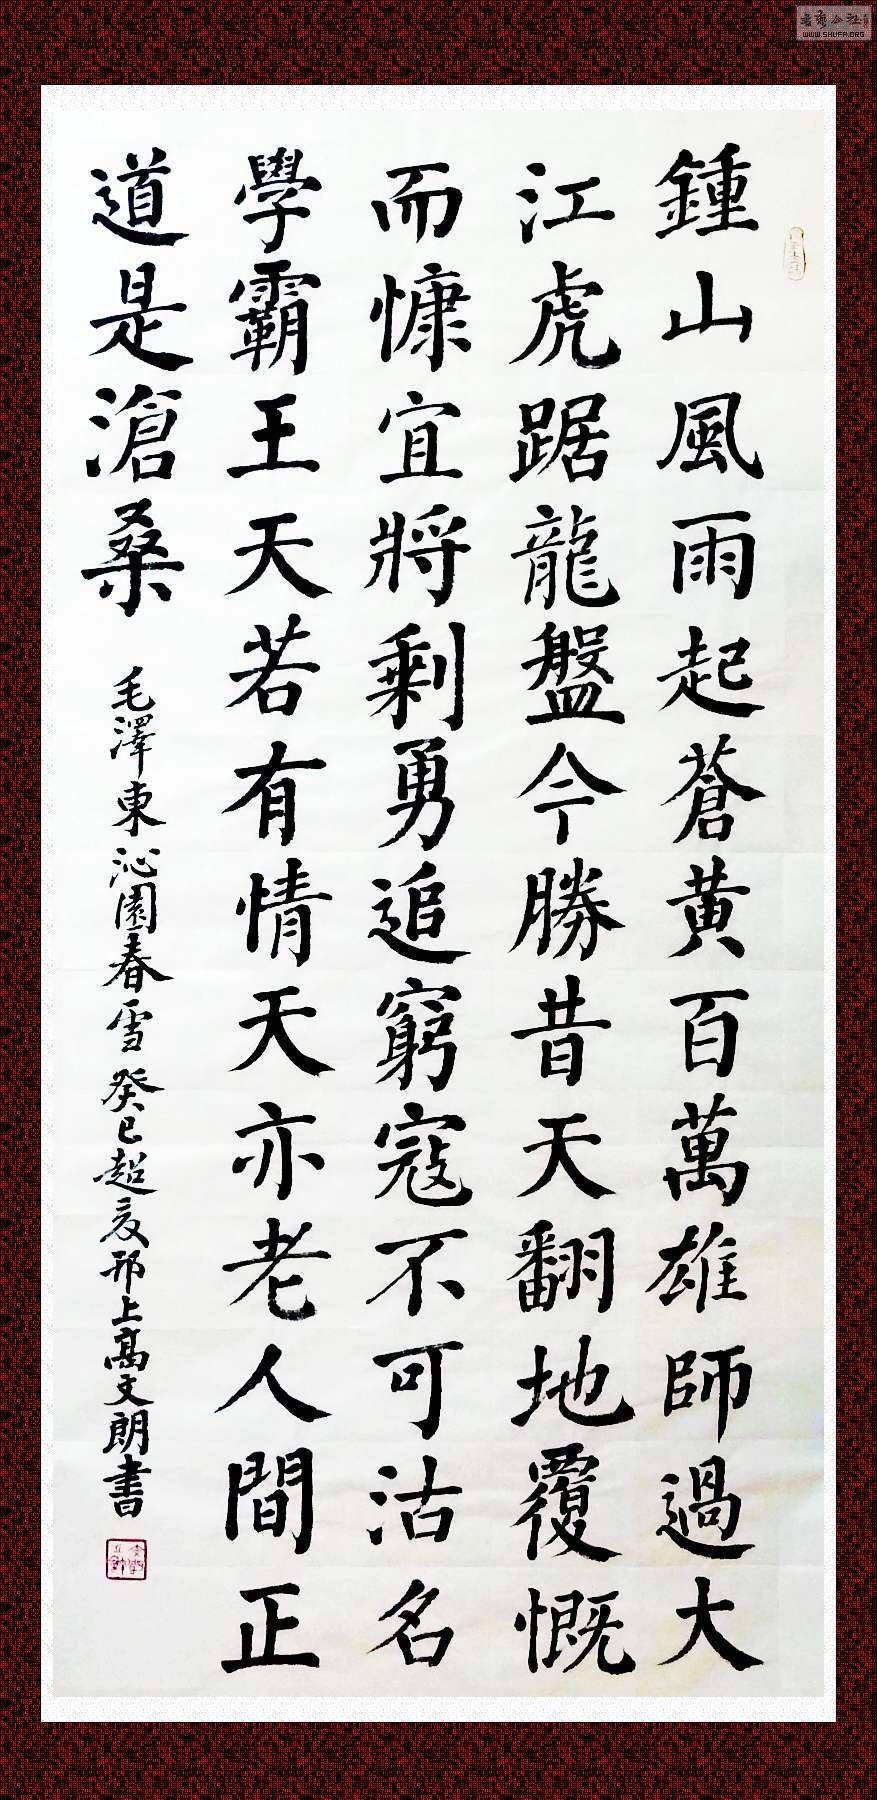 鍾山風雨起蒼黄百萬雄師過大
江虎踞龍盤今勝昔天翻地覆慨
而慷宜將剩勇追窮寇不可沽名
學霸王天若有情天亦老人間正
道是滄桑 毛澤東沁園春雪 癸巳超邗上髙文朗書
WWW.SHUFA.ORG